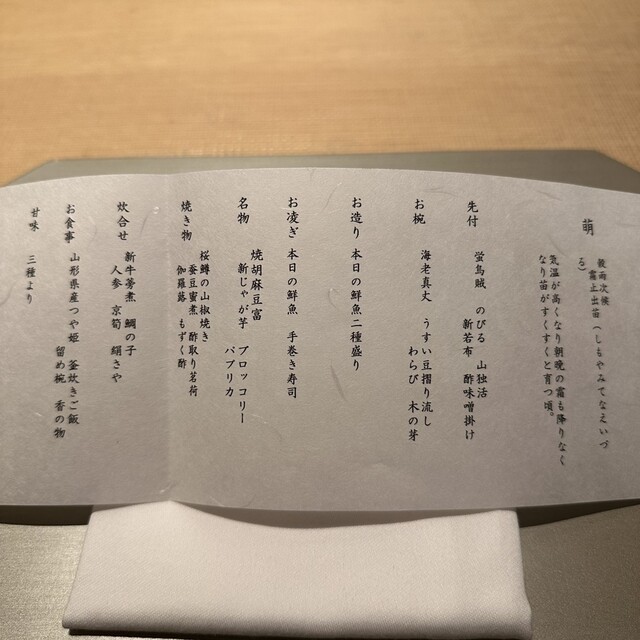 萌
穀雨次候
霜止出苗(しもやみてなえいづ
る)
気温が高くなり朝晩の霜も降りなく
なり苗がすくすくと育つ頃。
先付 蛍烏賊 のびる 山独活
新若布 酢味噌掛け
お椀 海老真丈 うすい豆摺り流し
わらび 木の芽
お造り 本日の鮮魚二種盛り
お凌ぎ 本日の鮮魚 手巻き寿司
名物 焼胡麻豆富
新じゃが芋 ブロッコリー
パプリカ
焼き物 桜鱒の山椒焼き
蚕豆蜜煮 酢取り茗荷
伽羅蕗 もずく酢
炊合せ 新牛蒡煮 鯛の子
人参 京筍 絹さや
お食事 山形県産つや姫 釜炊きご飯
留め椀 香の物
甘味 三種より